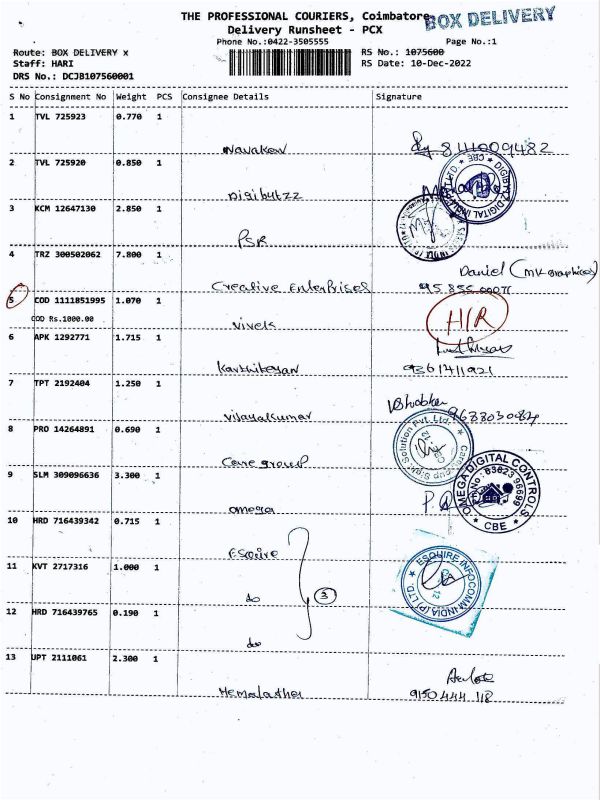 THE PROFESSIONAL COURIERS, Coimbatore
BOX DELIVERY
Delivery Runsheet - PCX
Phone No.:0422-3505555
Page No.:1
Route: BOX DELIVERY x
RS No.: 1075600
Staff: HARI
RS Date: 10-Dec-2022
DRS No.: DCJB107560001
S No Consignment No Weight PCS Consignee Details Signature
1 TVL 725923 0.770 1
8111009482
2 TVL 725920 0.850 1
Digibytzz
3 KCM 12647130 2.850 1
PSR
4 TRZ 300502062 7.800 1
Daniel (MK Graphices)
Creative Enterprises
5 COD 1111851995 1.070 1
COD Rs.1000.00
H/R
Vivek
6 APK 1292771 1.715 1
Karthikeyan
9361711921
7 TPT 2192404 1.250 1
Vijayakumar
9688030084
8 PRO 14264891 0.690 1
Care group
9 SLM 309096636 3.300 1
OMEGA DIGITAL CONTROLS
CBE
omega
10 HRD 716439342 0.715 1
Esquire
11 KVT 2717316 1.000 1
ESQUIRE INFOCOM INDIA (P) LTD
do
3
12 HRD 716439765 0.190 1
do
13 UPT 2111061 2.300 1
Hemalatha
9150444 118